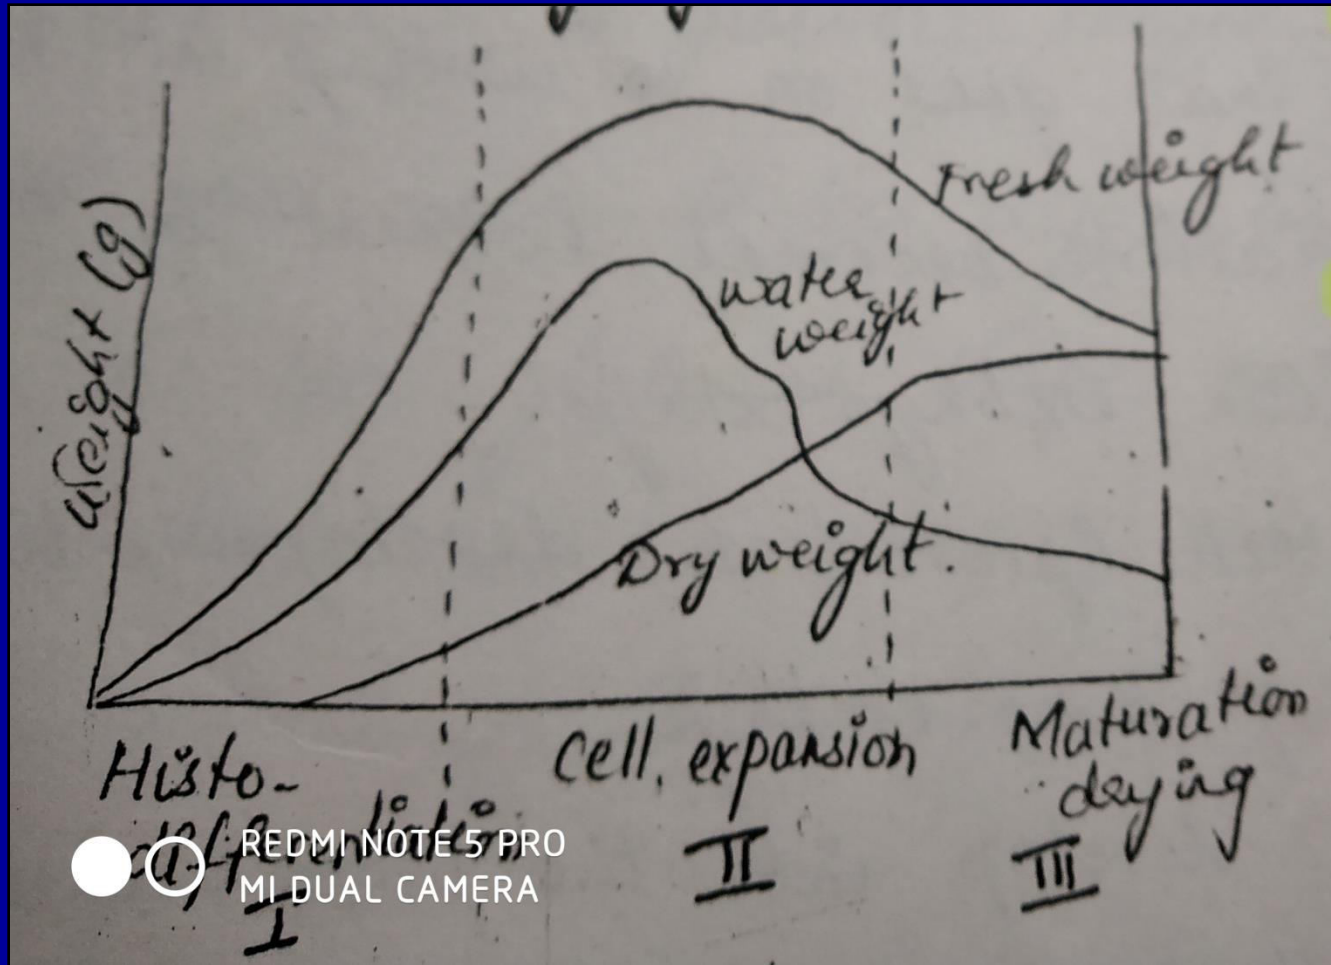 Fresh weight
water
weight
Weight (g)
Dry weight.
Histo-
differentiation
I
Cell. expansion
II
Maturation
drying
III
REDMI NOTE 5 PRO
MI DUAL CAMERA